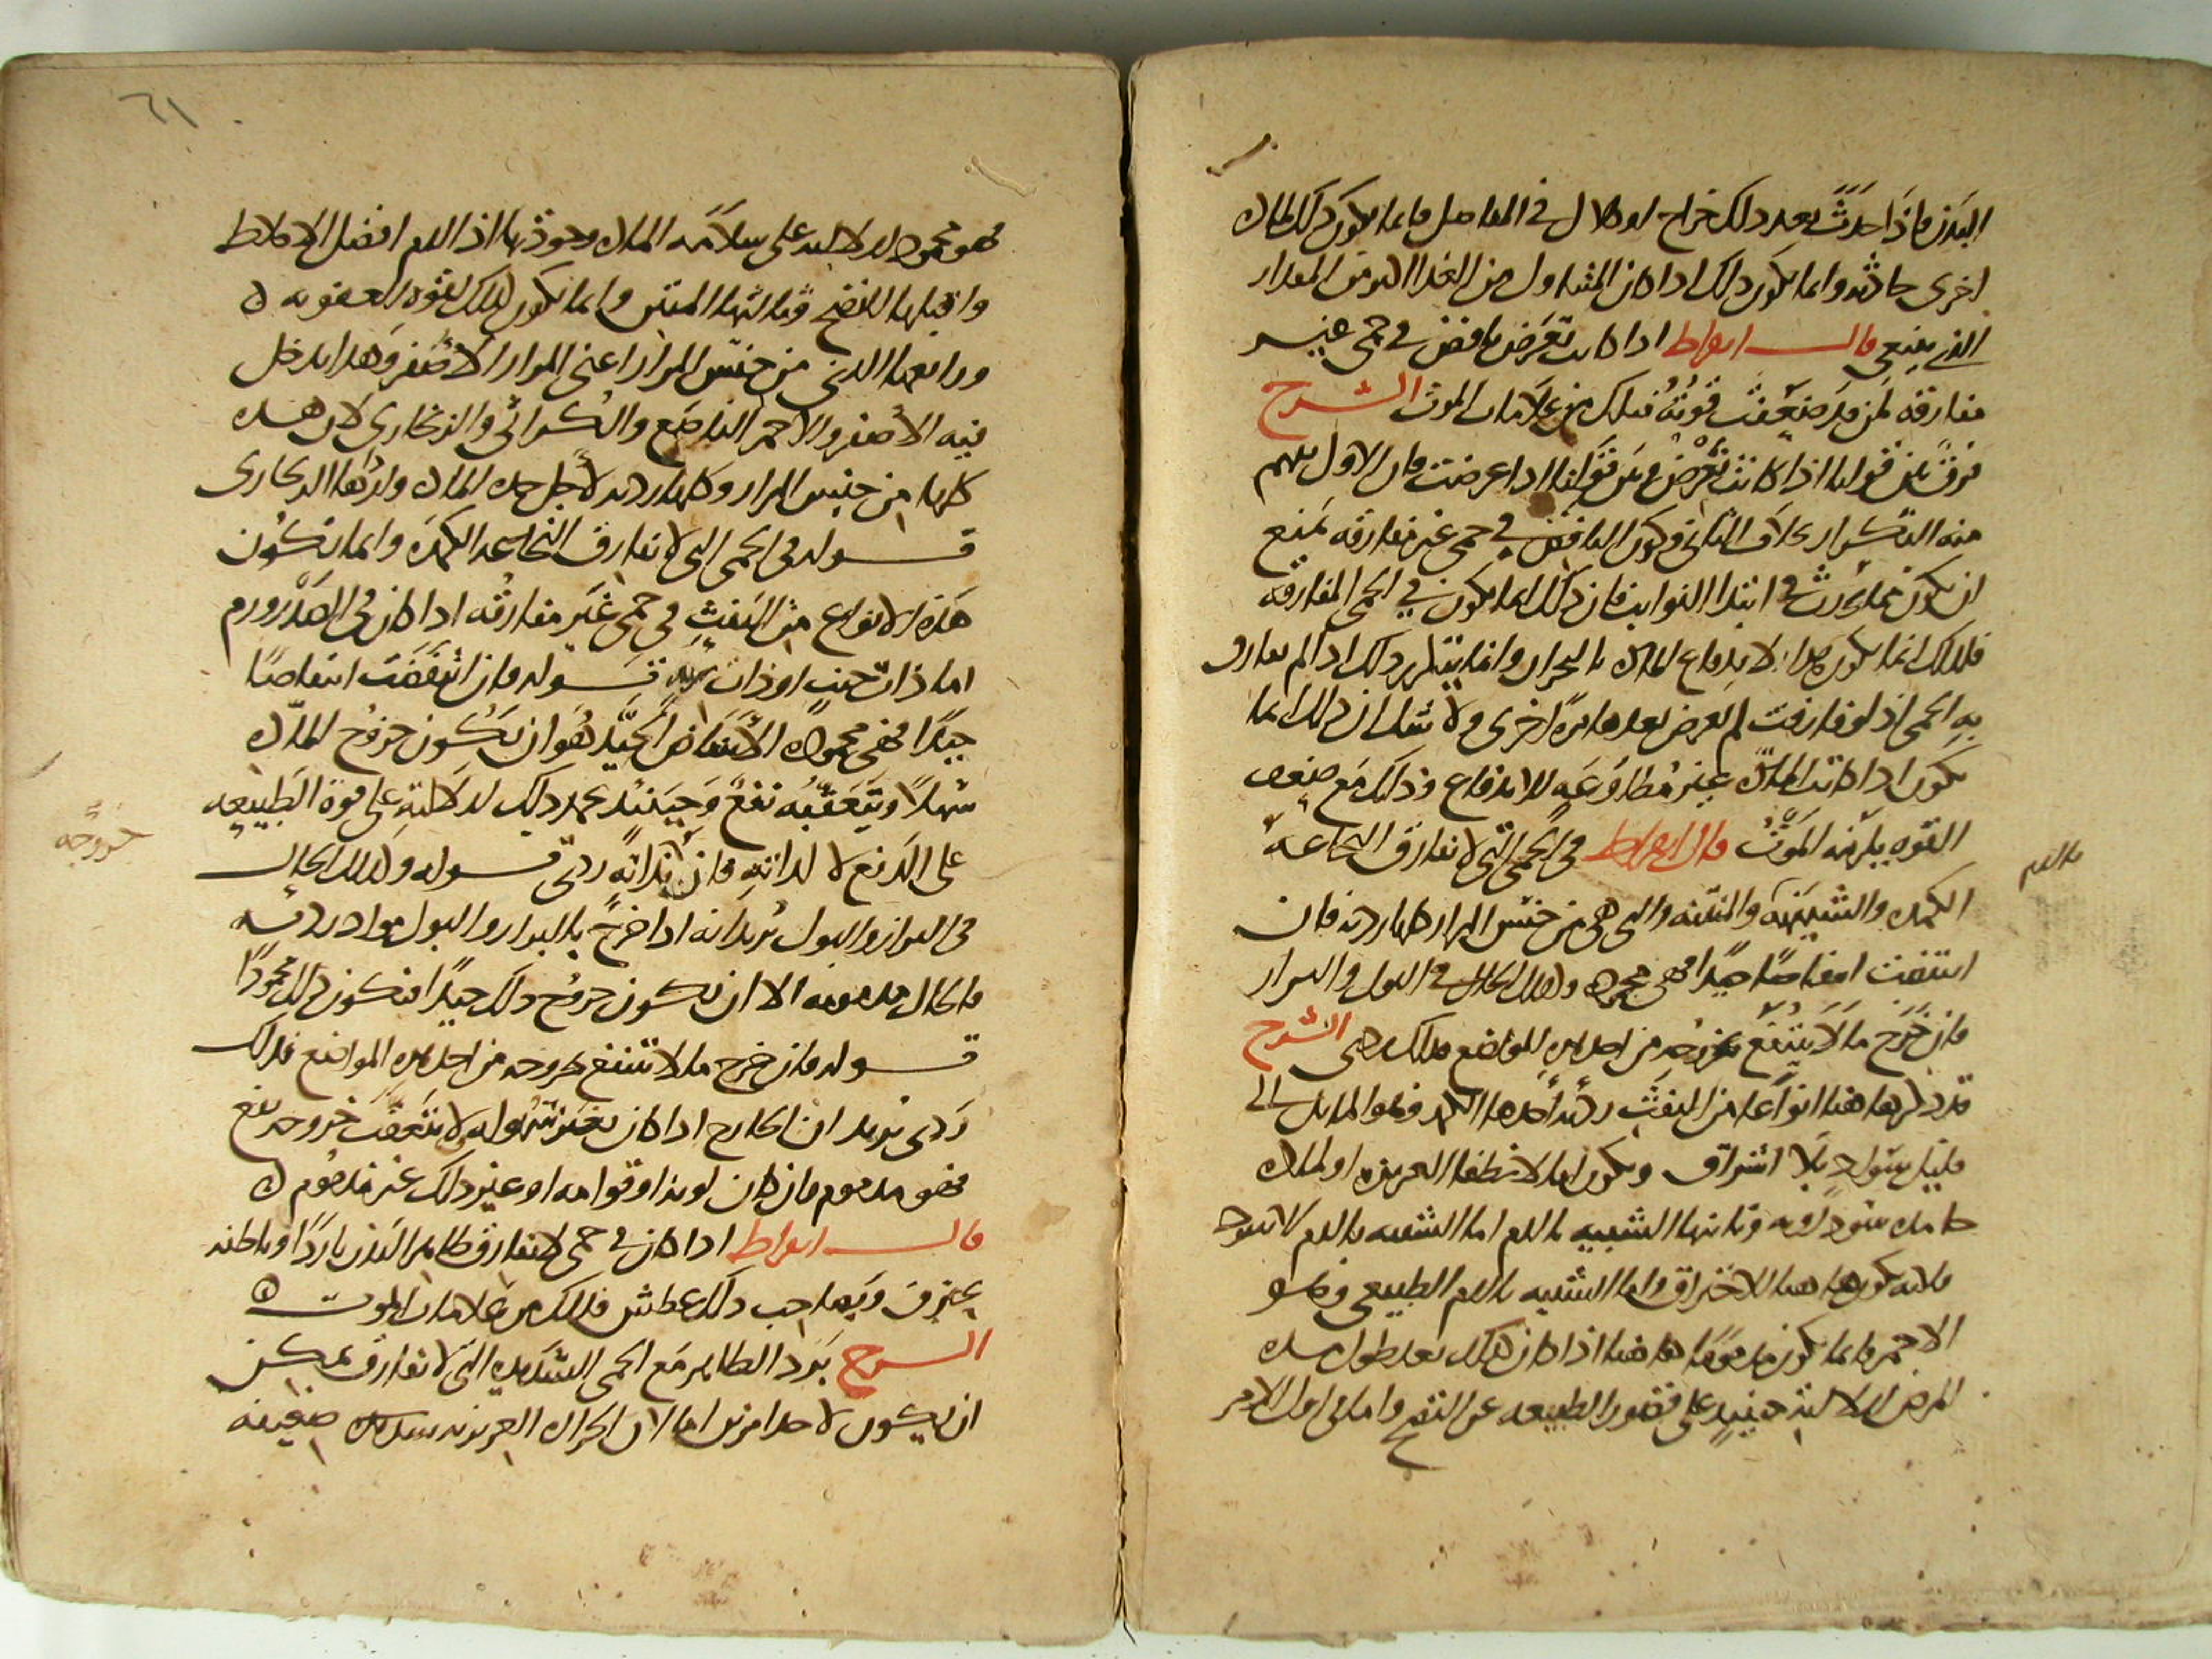 البدن فاذا حدث بعد ذلك خراج او كلال في المفاصل فانما يكون ذلك لمادة
اخرى حادثة وانما يكون ذلك اذا كان المتناول من الغذا اكثر من المقدار
الذي ينبغي قال ابقراط اذا كانت تعرض نافض في حمى غير
مفارقة لمن قد ضعفت قوته فتلك من علامات الموت الشرح
فرق بين قولنا اذا كانت تعرض وبين قولنا اذا عرضت فان الاول يفهم
منه التكرار بخلاف الثاني وكون النافض في حمى غير مفارقة يمنع
ان يكون مما يحدث في ابتدا النوايب فان ذلك انما يكون في الحمى المفارقة
فلذلك انما يكون هذا لاندفاع المادة بالبحران وانما يتكرر ذلك اذا لم يفارق
به الحمى اذ لو فارقت لم تعرض بعدها مرة اخرى ولا شك ان ذلك انما
يكون اذا كانت المادة غير مطاوعة للاندفاع وذلك مع ضعف
القوة يلزمه الموت قال ابقراط في الحمى التي لا تفارق النخاعة
الكمدة والشبيهة والمنتنة والتي هي من جنس المرار كلها ردية فان
بالدم
انتفضت انتفاضا جيدا فهي محمودة وكذلك الحال في البول والبراز
فان خرج ما لا ينتفع بخروجه من احد هذه المواضع فذلك ردي الشرح
قد ذكر هاهنا انواعا من النفث ردية احدها الكمد وهو المايل الى
قليل سواد بلا اشراق ويكون اما لانطفا الغريزة او لمادة
جامدة سوداوية وثانيها الشبيه بالدم اما الشبيه بالدم الاسود
فلانه يكون هاهنا للاحتراق واما الشبيه بالدم الطبيعي وهو
الاحمر فانما يكون مذموما هاهنا اذا كان ذلك بعد طول مدة
المرض لدلالته حينيذ على قصور الطبيعة عن النضج واما في اول الامر
٦١
فهو محمود لدلالته على سلامة المادة وجودتها اذ الدم افضل الاخلاط
واقبلها للنضج وثالثها المنتن وانما يكون كذلك لقوة العفونة
ورابعها الذي من جنس المرار اعني المرار الاصفر وهذا يدخل
فيه الاصفر والاحمر الناصع والكراثي والزنجاري لان هذه
كلها من جنس المرار وكلها ردية لاجل حدة المادة واردأها الزنجاري
قوله في الحمى التي لا تفارق النخاعة الكمدة وانما تكون
هذه الانواع من النفث في حمى غير مفارقة اذا كان في الصدر ورم
اما ذات جنب او ذات رية قوله فان انتفضت انتفاضا
جيدا فهي محمودة الانتفاض الجيد هو ان يكون خروج المادة
سهلا ويتعقبه نفع وحينيذ يحمد ذلك لدلالته على قوة الطبيعة
على الدفع لا لذاته فان ذاته ردي قوله وكذلك الحال
خروجه
في البراز والبول يريد انه اذا خرج بالبراز والبول مواد ردية
فالحال مذمومة الا ان يكون خروج ذلك جيدا فيكون ذلك محمودا
قوله فان خرج ما لا ينتفع بخروجه من احد هذه المواضع فذلك
ردي يريد ان الخارج اذا كان بغير سهولة لا يتعقب خروجه نفع
فهو مذموم فان كان لونه او قوامه او غير ذلك غير مذموم
قال ابقراط اذا كان في حمى لا تفارق ظاهر البدن باردا وباطنه
يحترق ويصاحب ذلك عطش فذلك من علامات الموت
الشرح برد الظاهر مع الحمى الشديدة التي لا تفارق يمكن
ان يكون لاحد امرين اما لان الحرارة الغريزية شديدة ضعيفة